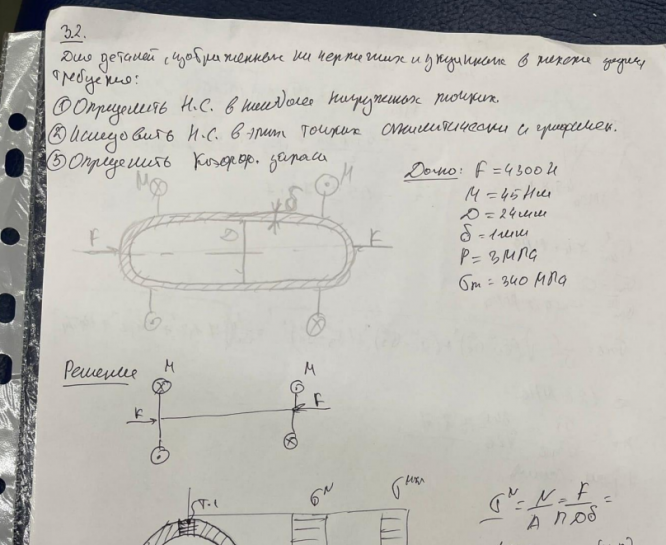 3.2.
Для деталей, изображенных на чертежах и указанных в тексте задач,
требуется:
① Определить Н.С. в наиболее нагруженых точках.
② Исследовать Н.С. в этих точках аналитически и графичек.
③ Определить Коэфф. запаса
Дано: F = 4300 Н
M = 45 Нм
D = 24 мм
δ = 1 мм
P = 3 МПа
σт = 340 МПа
M M
δ
F D F
Решение
M M
F F
т-1
σᴺ
σᴺ = N/A = F/πDδ =